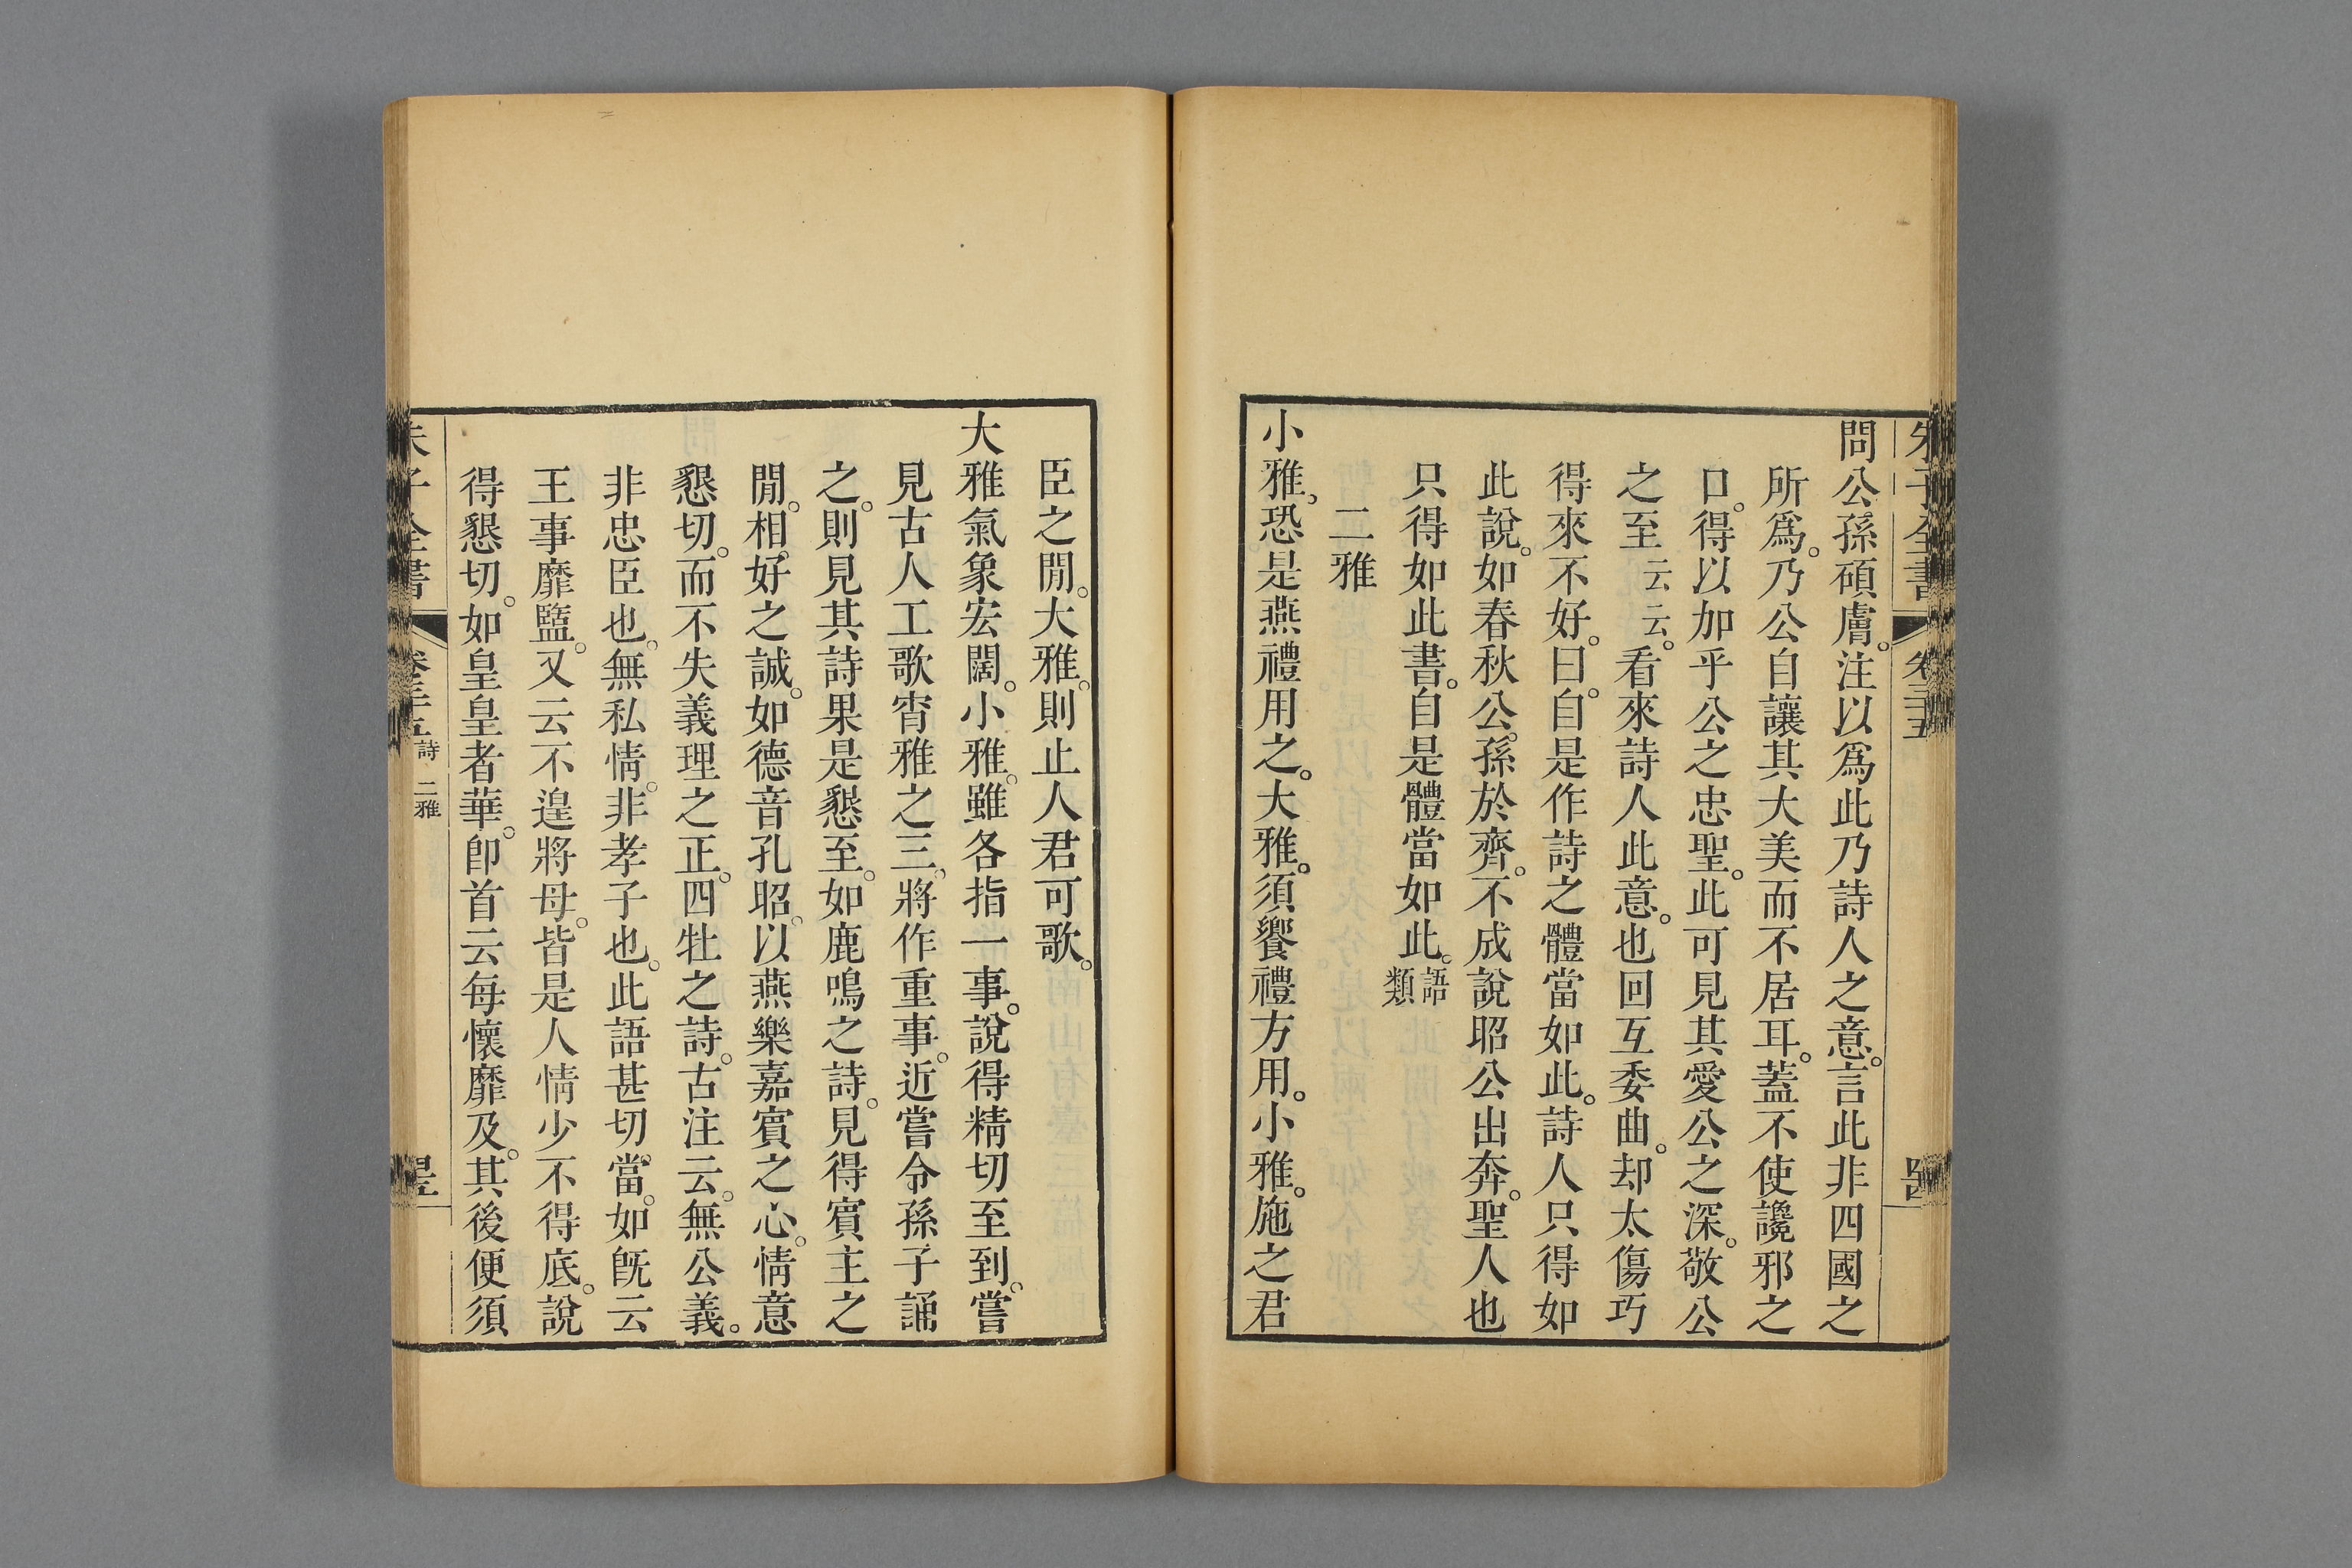 朱子全書 卷三五
問公孫碩膚。注以爲此乃詩人之意。言此非四國之
所爲。乃公自讓其大美而不居耳。蓋不使讒邪之
口。得以加乎公之忠聖。此可見其愛公之深。敬公
之至云云。看來詩人此意。也回互委曲。却太傷巧
得來不好。曰。自是作詩之體當如此。詩人只得如
此說。如春秋公孫於齊。不成說昭公出奔。聖人也
只得如此書。自是體當如此。語類
二雅
小雅。恐是燕禮用之。大雅。須饗禮方用。小雅。施之君
臣之閒。大雅。則止人君可歌。
大雅氣象宏闊。小雅。雖各指一事。說得精切至到。嘗
見古人工歌宵雅之三。將作重事。近嘗令孫子誦
之。則見其詩果是懇至。如鹿鳴之詩。見得賓主之
閒。相好之誠。如德音孔昭。以燕樂嘉賓之心。情意
懇切。而不失義理之正。四牡之詩。古注云。無公義。
非忠臣也。無私情。非孝子也。此語甚切當。如旣云
王事靡盬。又云不遑將母。皆是人情少不得底。說
得懇切。如皇皇者華。卽首云每懷靡及。其後便須
朱子全書 卷三五 詩 二雅